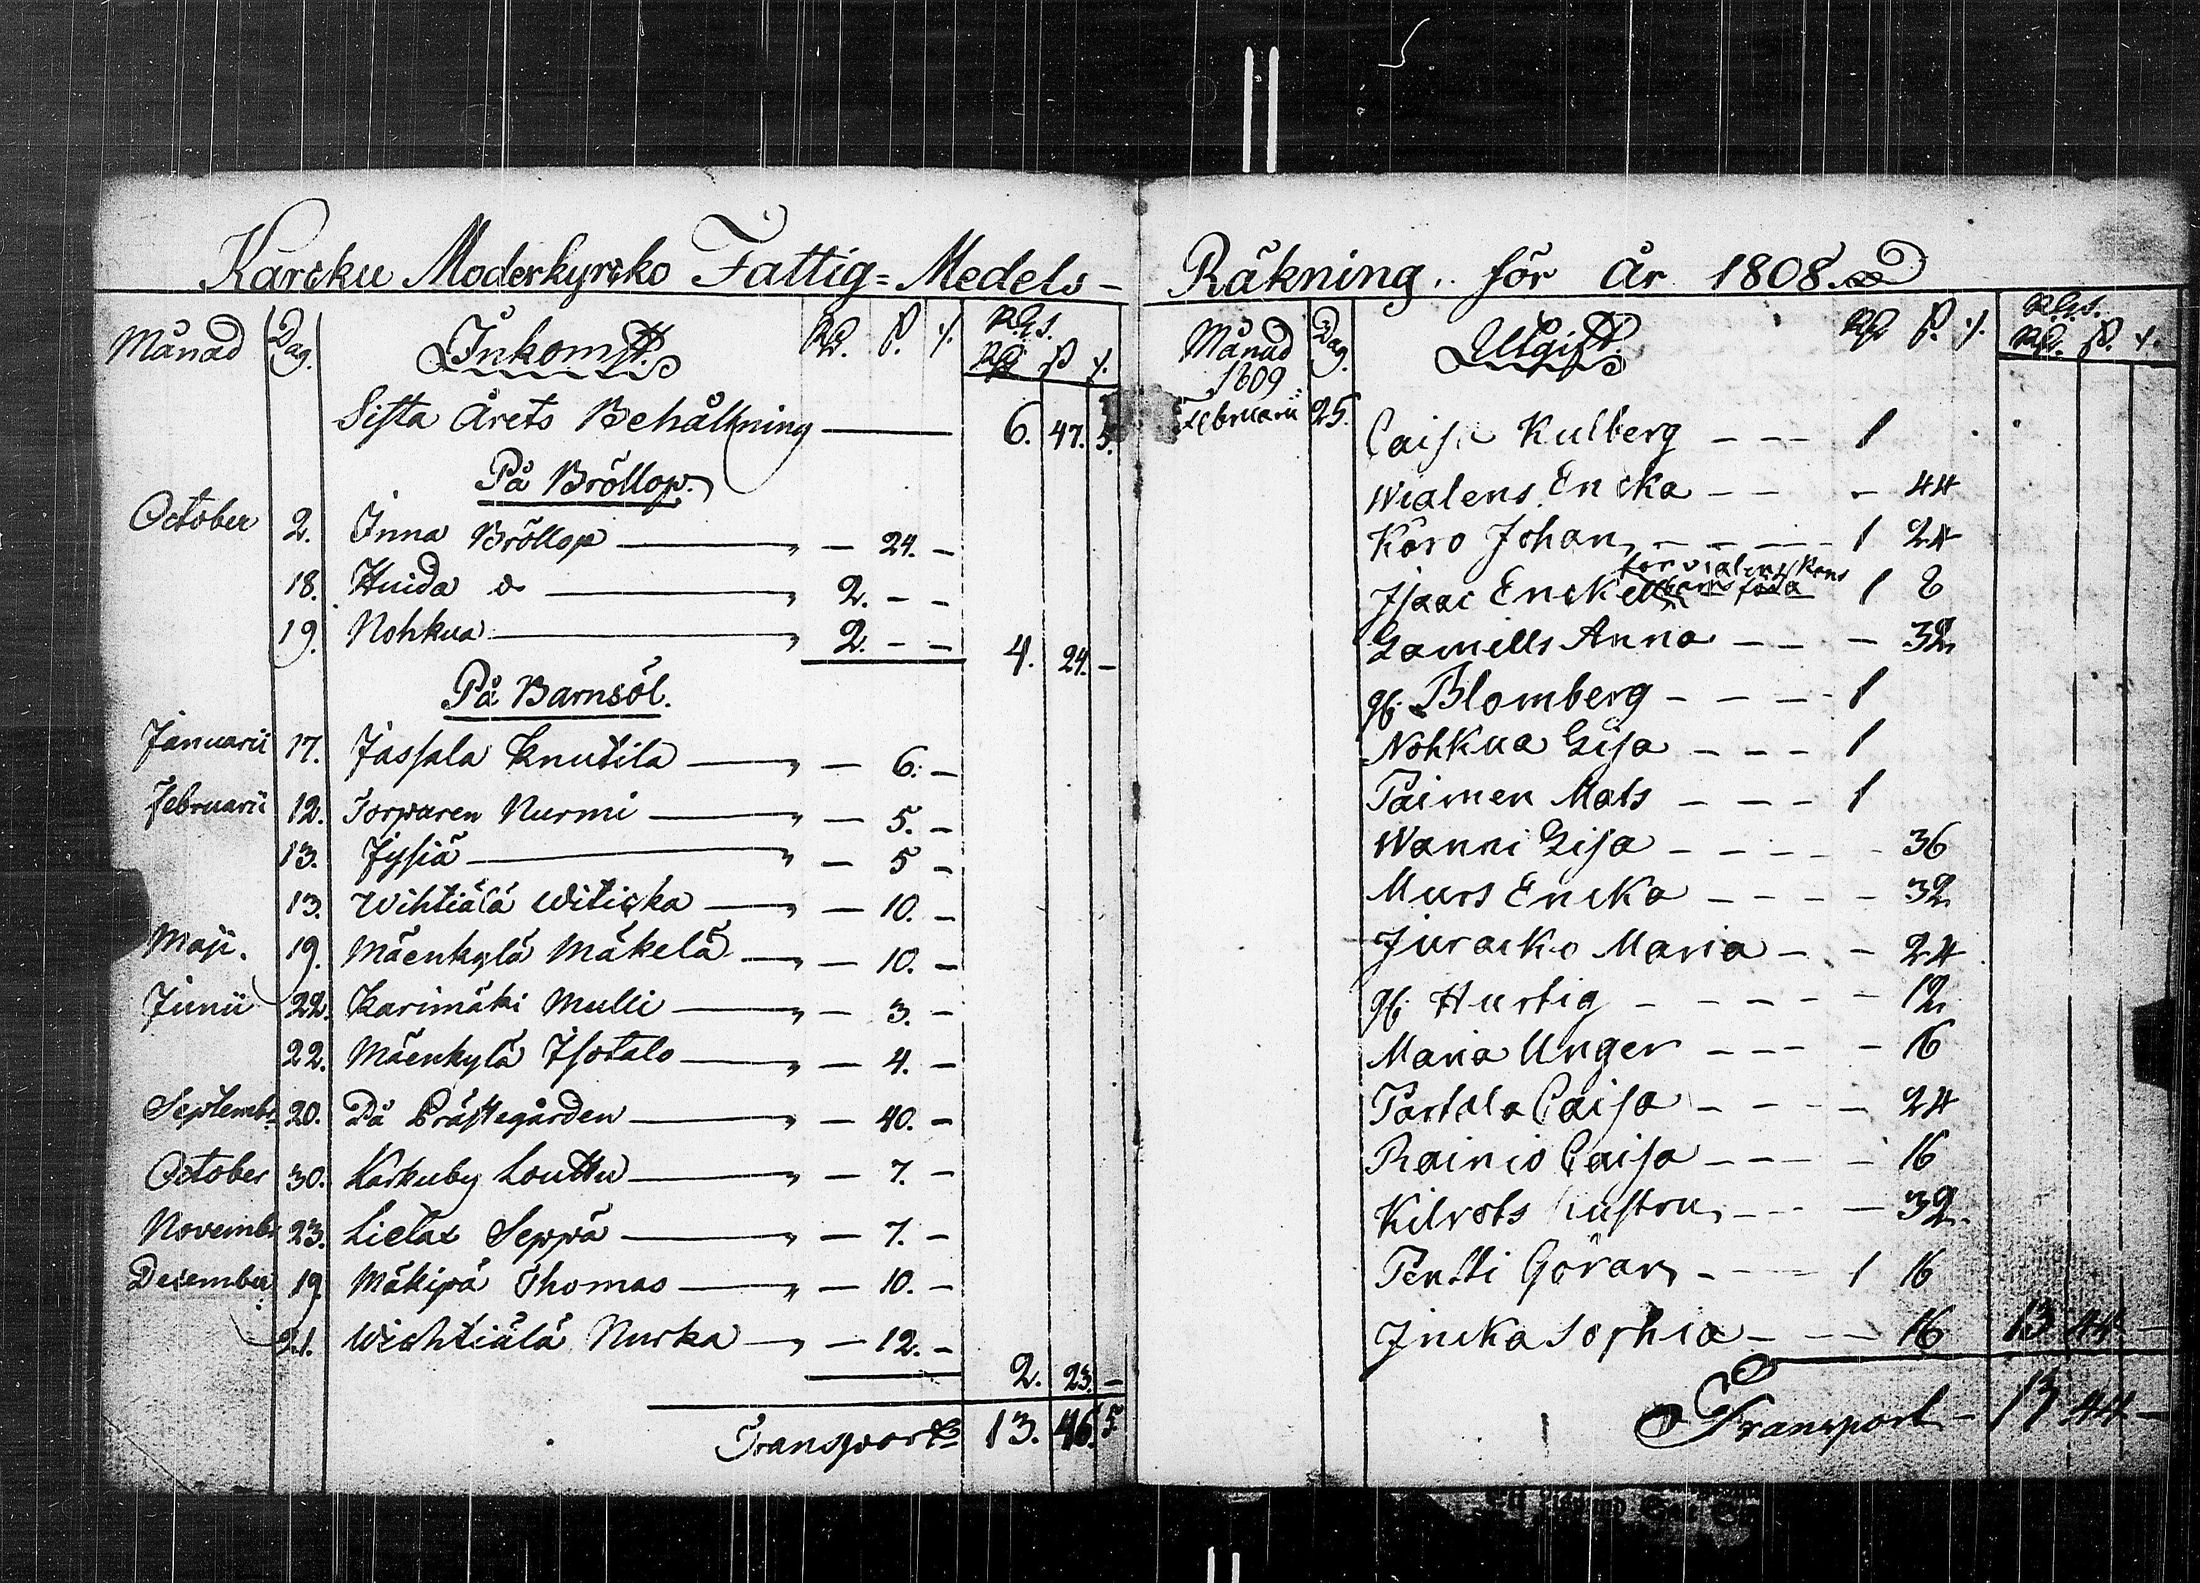 Karcku Moderkyrcko Fattig=Medels -
Månad Dag. Inkomst. Rd. ß. r. RGS. Rd ß r.
Sista Årets Behållning — 6. 47. 5.
På Bröllop.
October 2. Inna Bröllop — " — 24. —
18. Huida do — " 2. — —
19. Nohkua — " 2. — — 4. 24. —
På Barnsöl.
Januarii 17. Jassala Knutila — " — 6. —
Februarii 12. Torvaren Nurmi — " — 5. —
13. Jysiä — " — 5 —
13. Wihtiälä Witicka — " — 10. —
Maji. 19. Mäenkylä Mäkelä — " — 10. —
Junii 22. Karimäki Mulli — " — 3. —
22. Mäenkylä Isotalo — " — 4. —
Septembr. 20. På Prästegården — " — 40. —
October 30. Karkuby Louttu — " — 7. —
Novembr 23. Lielax Seppä — " — 7. —
December 19. Mäkipä Thomas — " — 10. —
21. Wichtiälä Nurka — " — 12. —
2. 23. —
Transport 13. 46. 5
Räkning. för år 1808.
Månad Dag. Utgift. Rd ß. r. RGS. Rd. ß. r.
1809
Februarii 25. Caisa Kulberg - - - 1
Wialens Encka - - - 44
Köro Johan - - - - 1 24
för vialenskans
Isaac Enckells barns föda 1 8
Gamells Anna - - - 32
gl. Blomberg - - - 1
Nohkua Lisa - - - 1
Taimen Mats - - - 1
Wanni Lisa - - - - 36
Murs Encka - - - - 32
Juracko Maria - - 24
gl. Hurtig - - - - - 12
Maria Unger - - - - 16
Partala Caisa - - - - 24
Rainio Caisa - - - - 16
Kilrots hustru - - - 32.
Pentti Göran - - - 1 16
Jncka Sophia - - - 16 13 44 —
Transport - 13 44 —